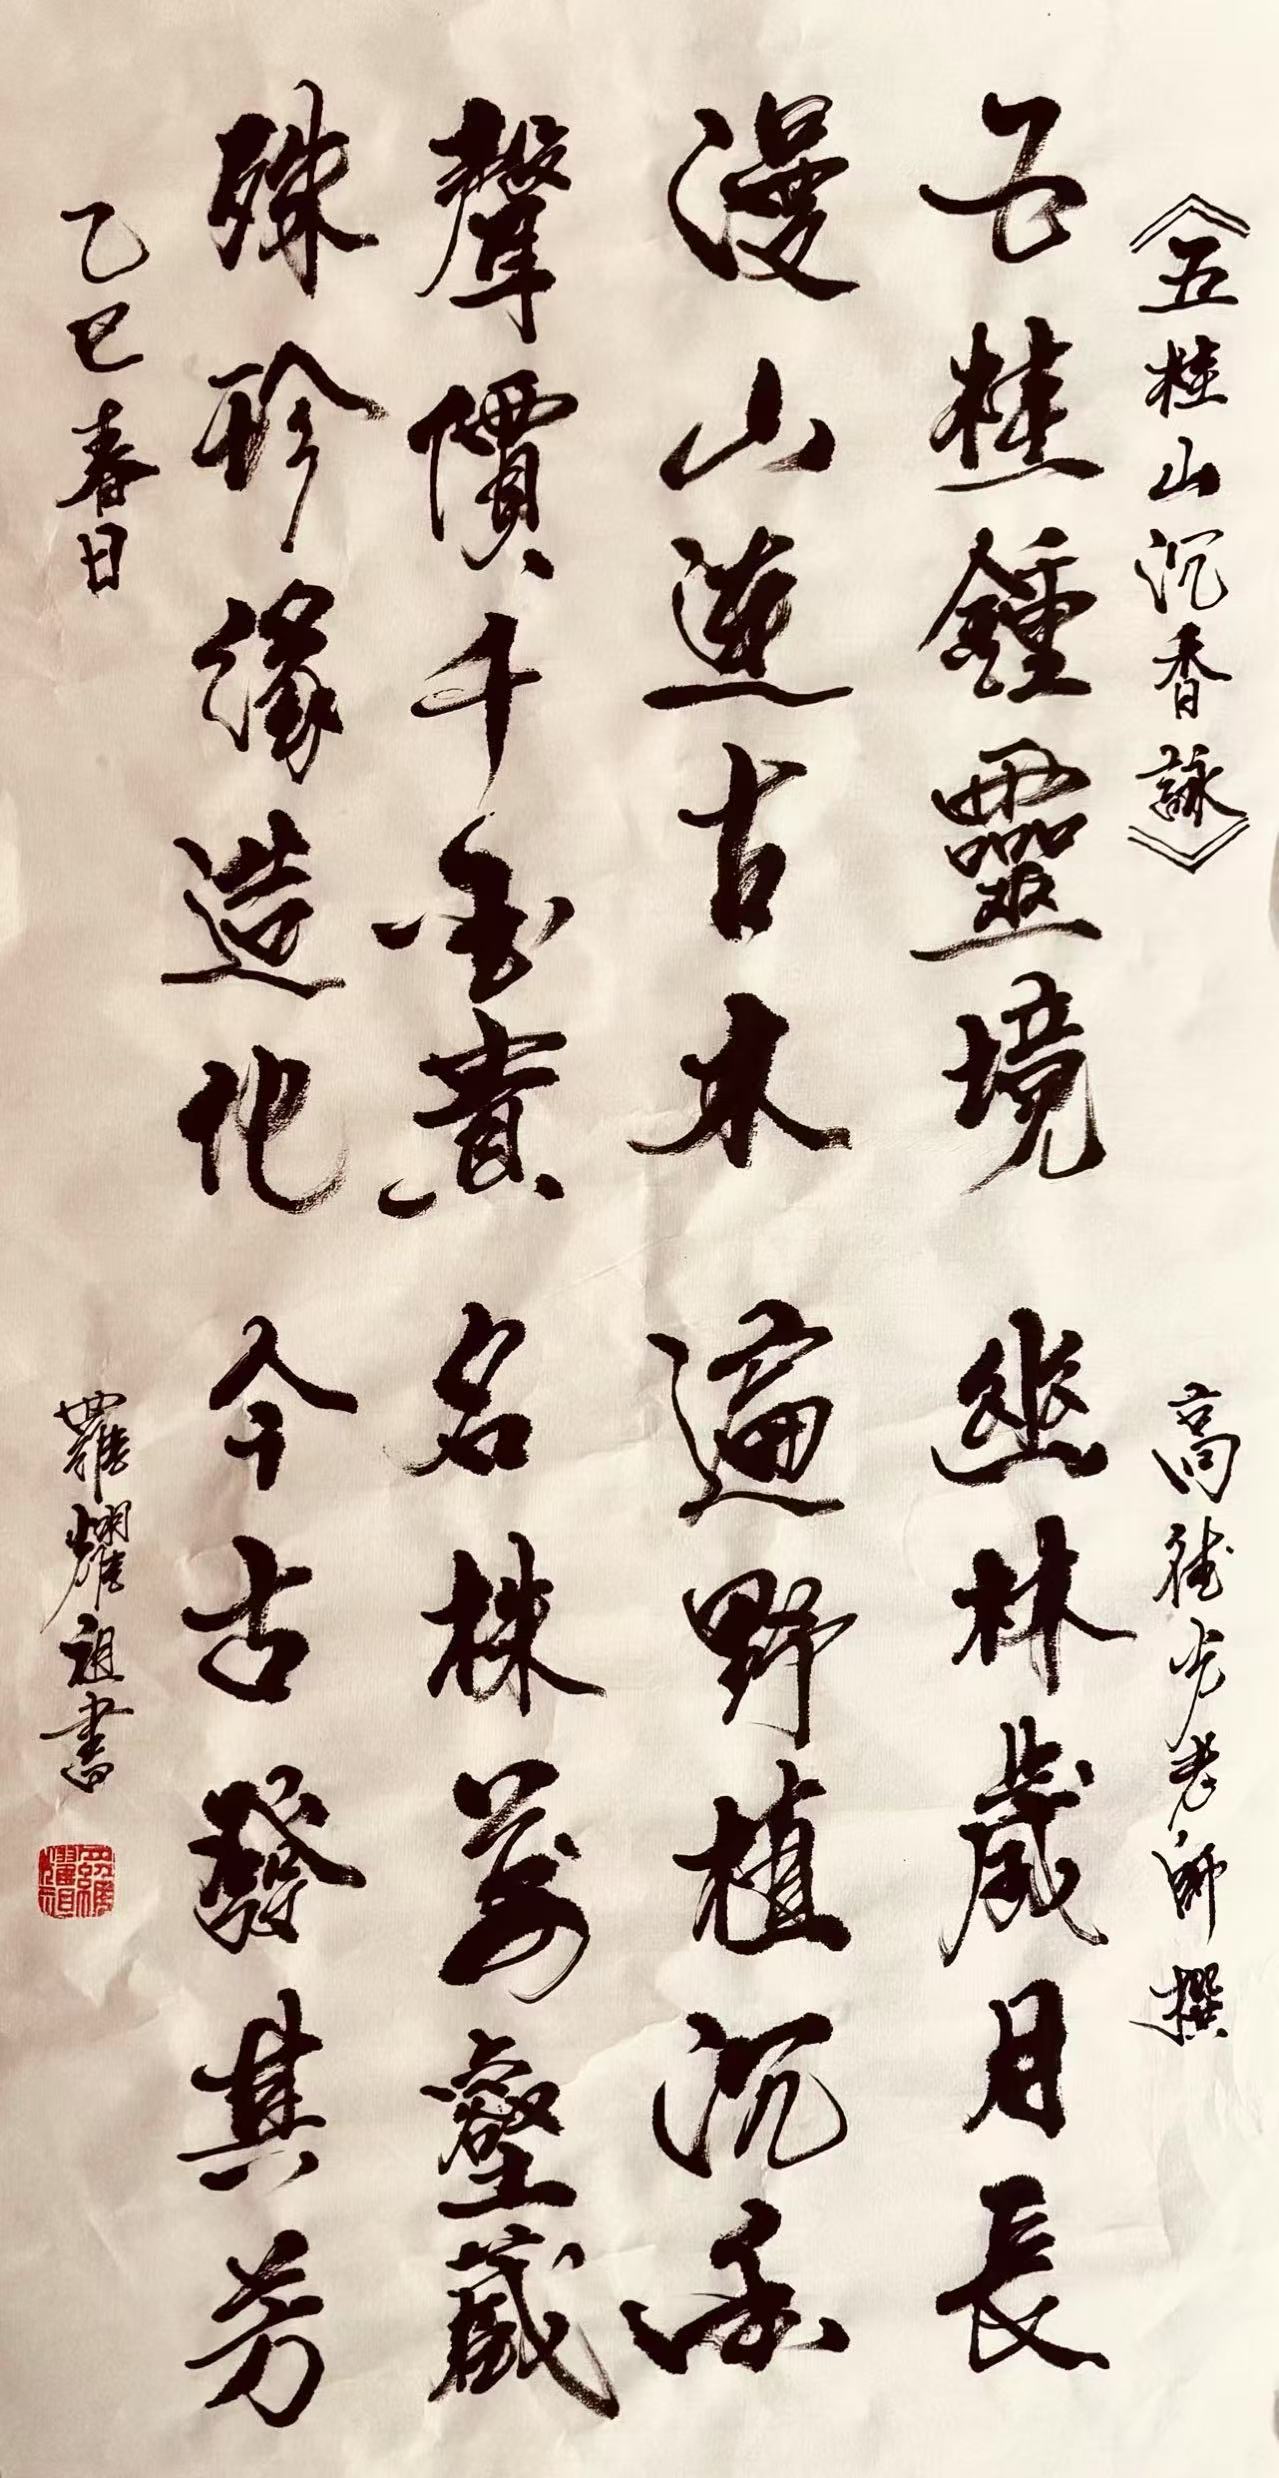 《五桂山沉香詠》 高德光老師撰
五桂鍾靈境 幽林歲月長
漫山連古木 遍野植沉香
聲價千金貴 名株萬壑藏
殊珍緣造化 今古發其芳
乙巳春日 羅耀祖書
羅耀祖